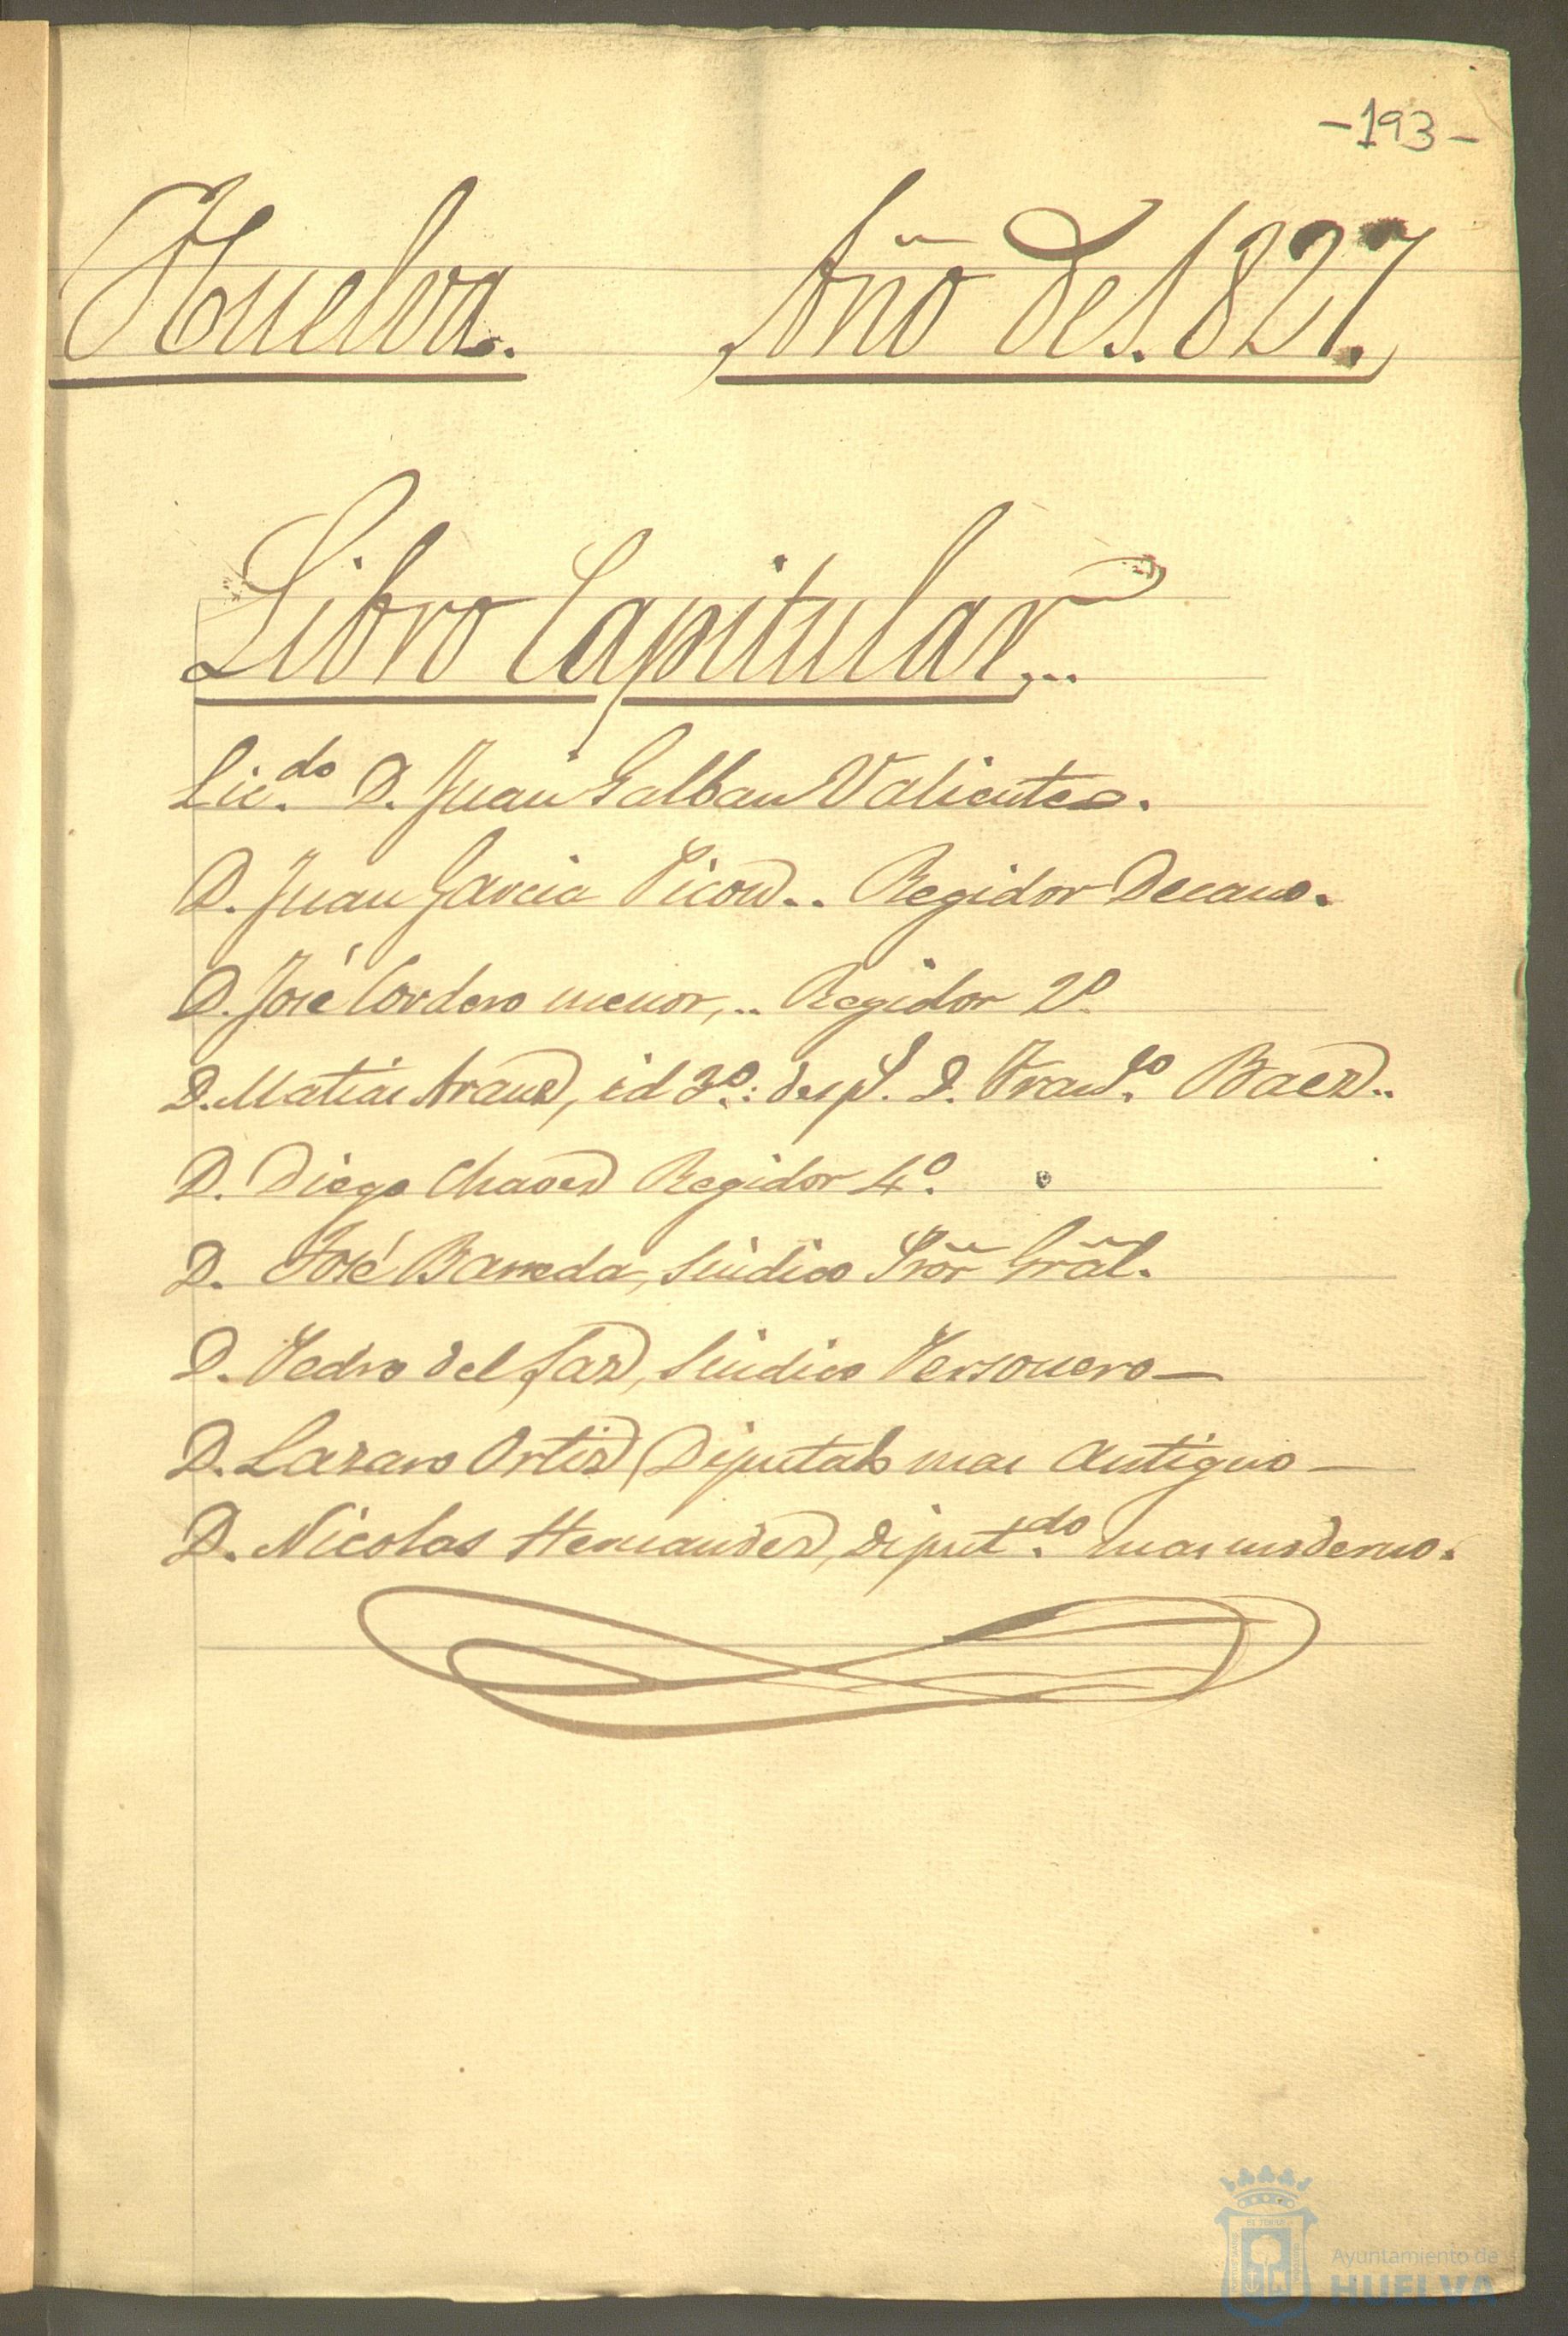 -193-
Huelva. Año de 1827.
Libro Capitular...
Lic.do D. Juan Galban Valiente.
D. Juan Garcia Picon.. Regidor Decano.
D. José Cordero menor,.. Regidor 2º
D. Matias Arauz, id 3º: des p. D. Fran.co Baez..
D. Diego Chaves Regidor 4º.
D. José Barreda, Sindico Prõr Grãl.
D. Pedro del Saz, Sindico Personero—
D. Lazaro Ortiz, Diputado mas Antiguo—
D. Nicolas Hernandez, Diput.do mas moderno.
Ayuntamiento de
HUELVA